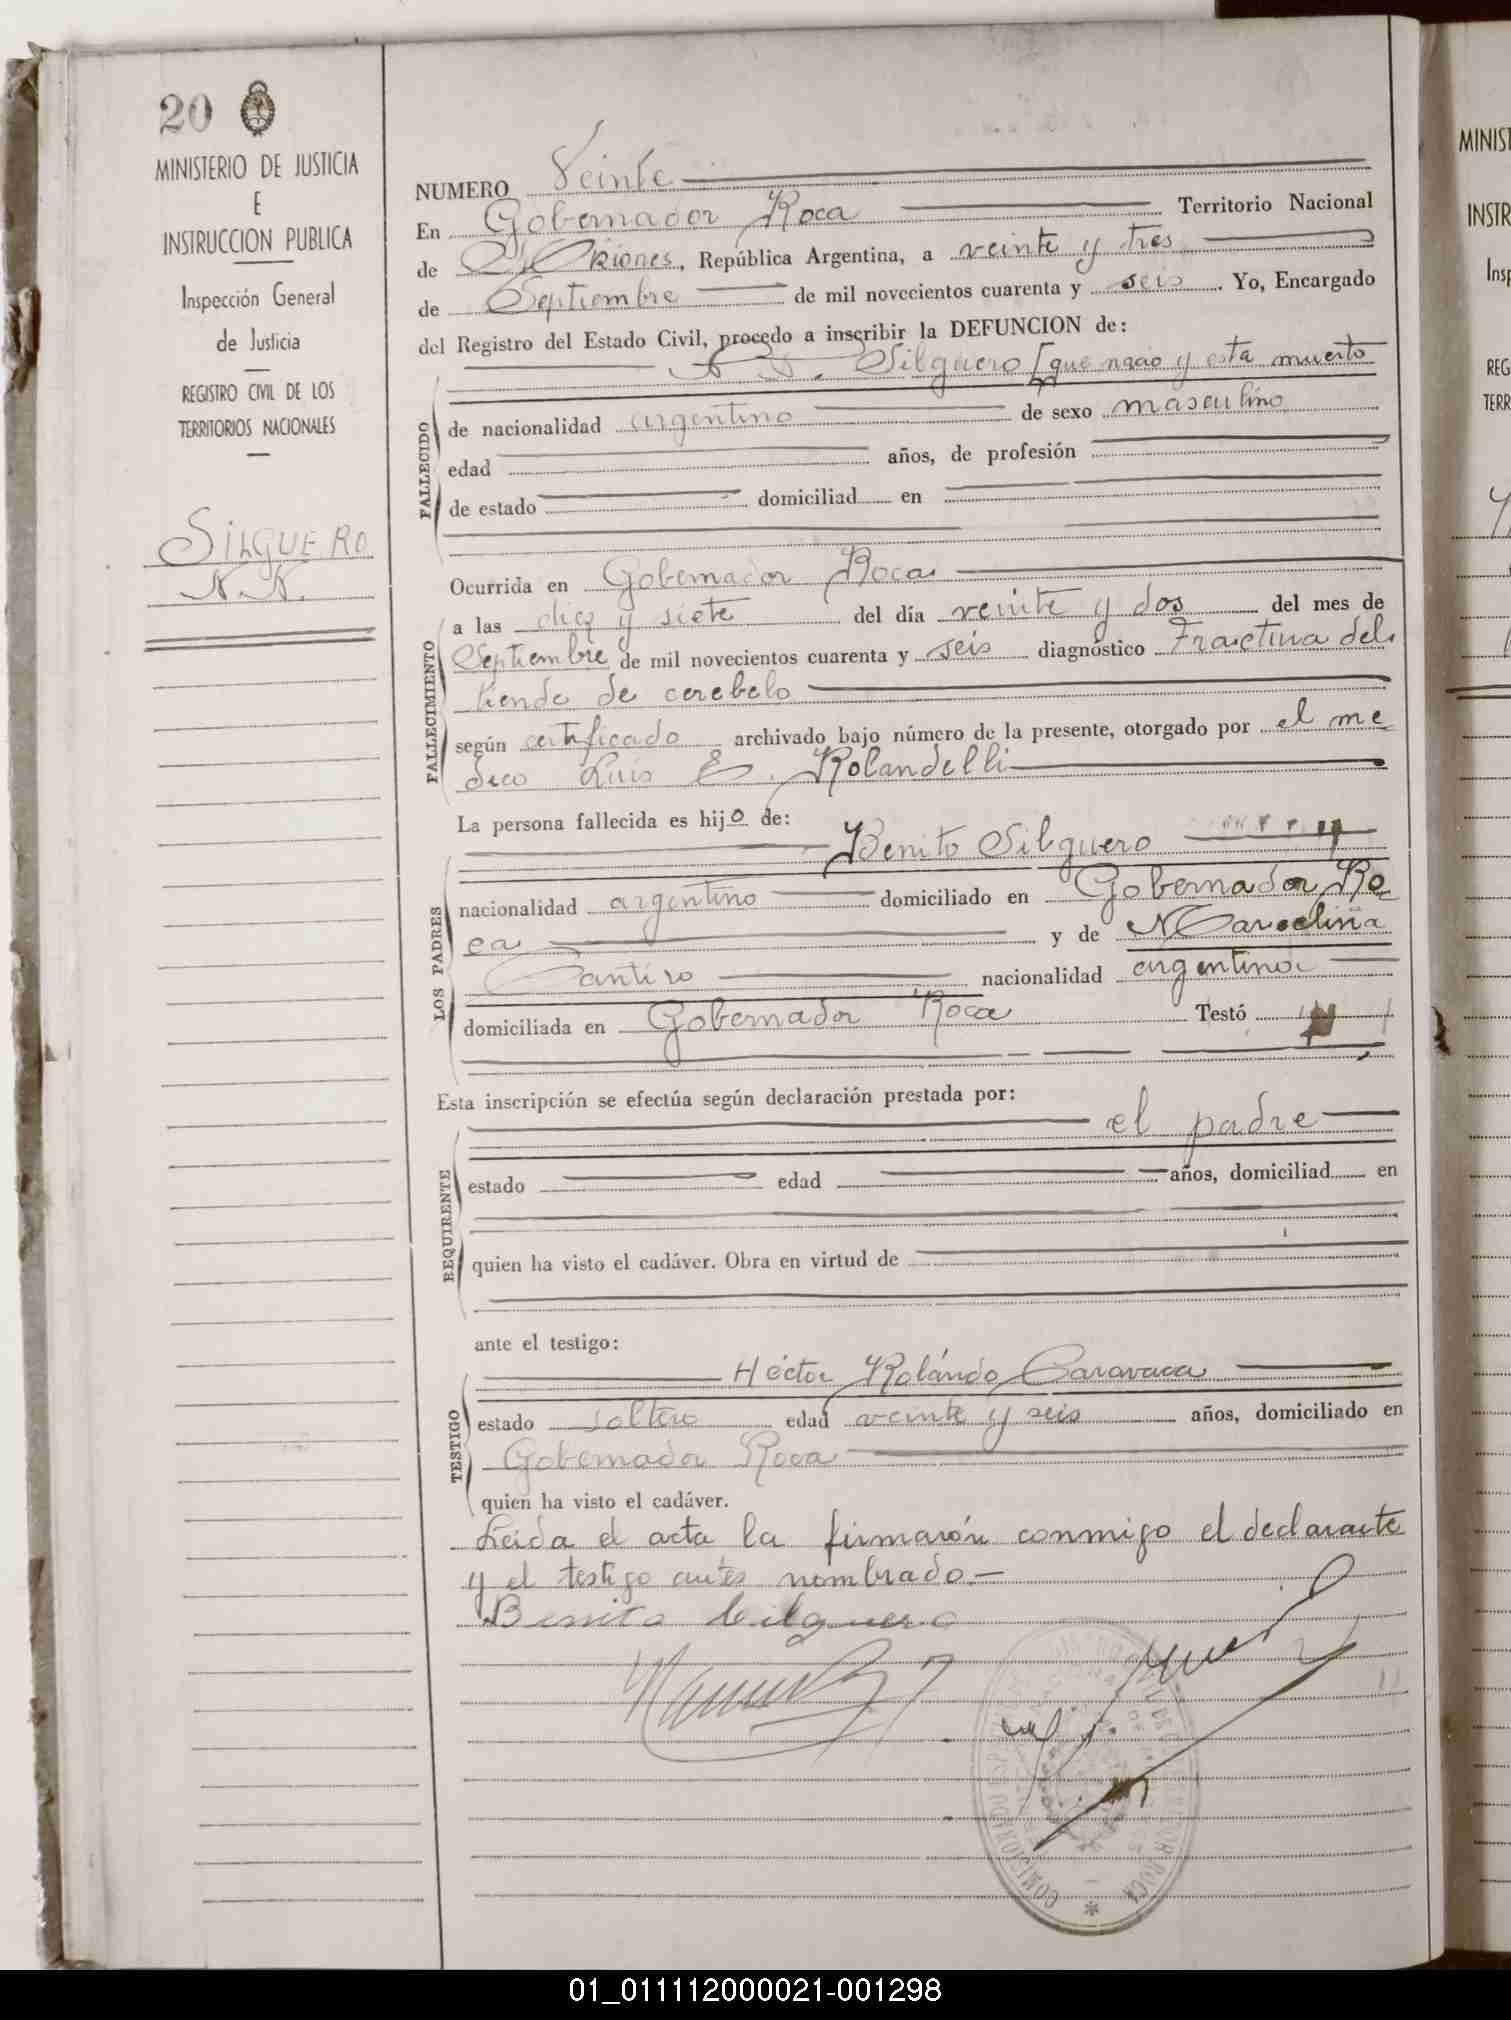 20
MINISTERIO DE JUSTICIA
E
INSTRUCCION PUBLICA
Inspección General
de Justicia
REGISTRO CIVIL DE LOS
TERRITORIOS NACIONALES
SILGUERO
N. N.
NUMERO Veinte
En Gobernador Roca Territorio Nacional
de Misiones, República Argentina, a veinte y tres
de Septiembre de mil novecientos cuarenta y seis. Yo, Encargado
del Registro del Estado Civil, procedo a inscribir la DEFUNCION de:
N. N. Silguero que nacio y esta muerto
FALLECIDO
de nacionalidad argentino de sexo masculino
edad años, de profesión
de estado domiciliad en
Ocurrida en Gobernador Roca
FALLECIMIENTO
a las diez y siete del día veinte y dos del mes de
Septiembre de mil novecientos cuarenta y seis diagnóstico Fractura del
tiende de cerebelo
según certificado archivado bajo número de la presente, otorgado por el me
dico Luis E. Rolandelli
La persona fallecida es hijo de:
LOS PADRES
Benito Silguero
nacionalidad argentino domiciliado en Gobernador Ro
ca y de Marcelina
Santiro nacionalidad argentina
domiciliada en Gobernador Roca Testó
Esta inscripción se efectúa según declaración prestada por:
REQUIRENTE
el padre
estado edad años, domiciliad en
quien ha visto el cadáver. Obra en virtud de
ante el testigo:
TESTIGO
Héctor Rolándo Caravaca
estado soltero edad veinte y seis años, domiciliado en
Gobernador Roca
quien ha visto el cadáver.
Leida el acta la firmarón conmigo el declarante
y el testigo antes nombrado.—
Benito Silguero
01_011112000021-001298